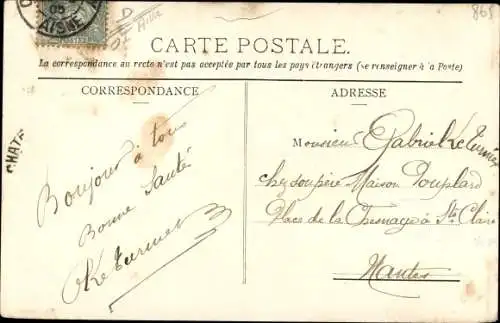 05
AISNE
D
Aisne
869
CARTE POSTALE.
La correspondance au recto n'est pas acceptée par tous les pays étrangers (Se renseigner à la Poste)
CORRESPONDANCE
ADRESSE
CHATE
Bonjour à tous
Bonne Santé
Monsieur Gabriel
chez son père Maison
Place de la à Ste Claire
Nantes